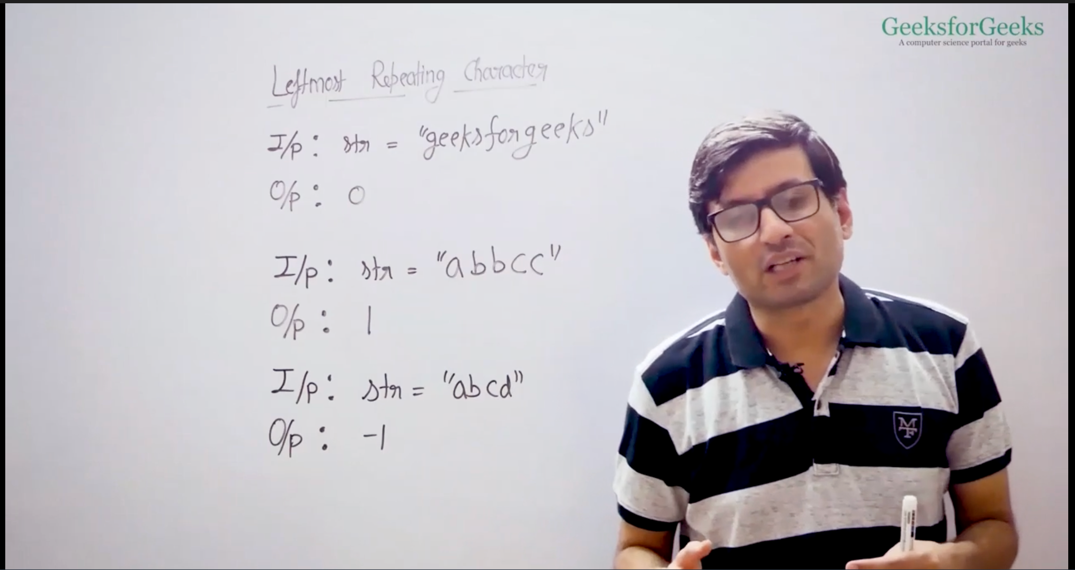 GeeksforGeeks
A computer science portal for geeks
Leftmost Repeating Character
I/p : str = "geeksforgeeks"
O/p : 0
I/p : str = "abbcc"
O/p : 1
I/p : str = "abcd"
O/p : -1
MF